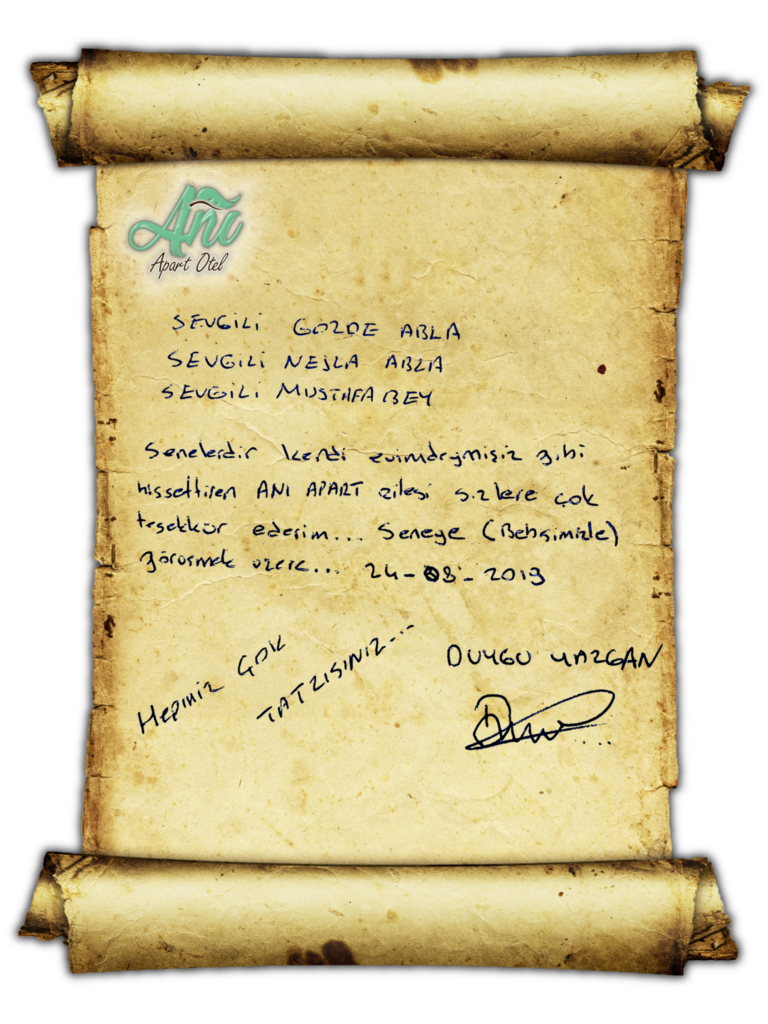 Anı
Apart Otel
SEVGİLİ GÖZDE ABLA
SEVGİLİ NEJLA ABLA
SEVGİLİ MUSTAFA BEY
Senelerdir kendi evimdeymişiz gibi
hissettiren ANI APART ailesi sizlere çok
teşekkür ederim... Seneye
görüşmek üzere... 24-08-2019
Hepiniz ÇOK
TATLISINIZ...
DUYGU YAZGAN